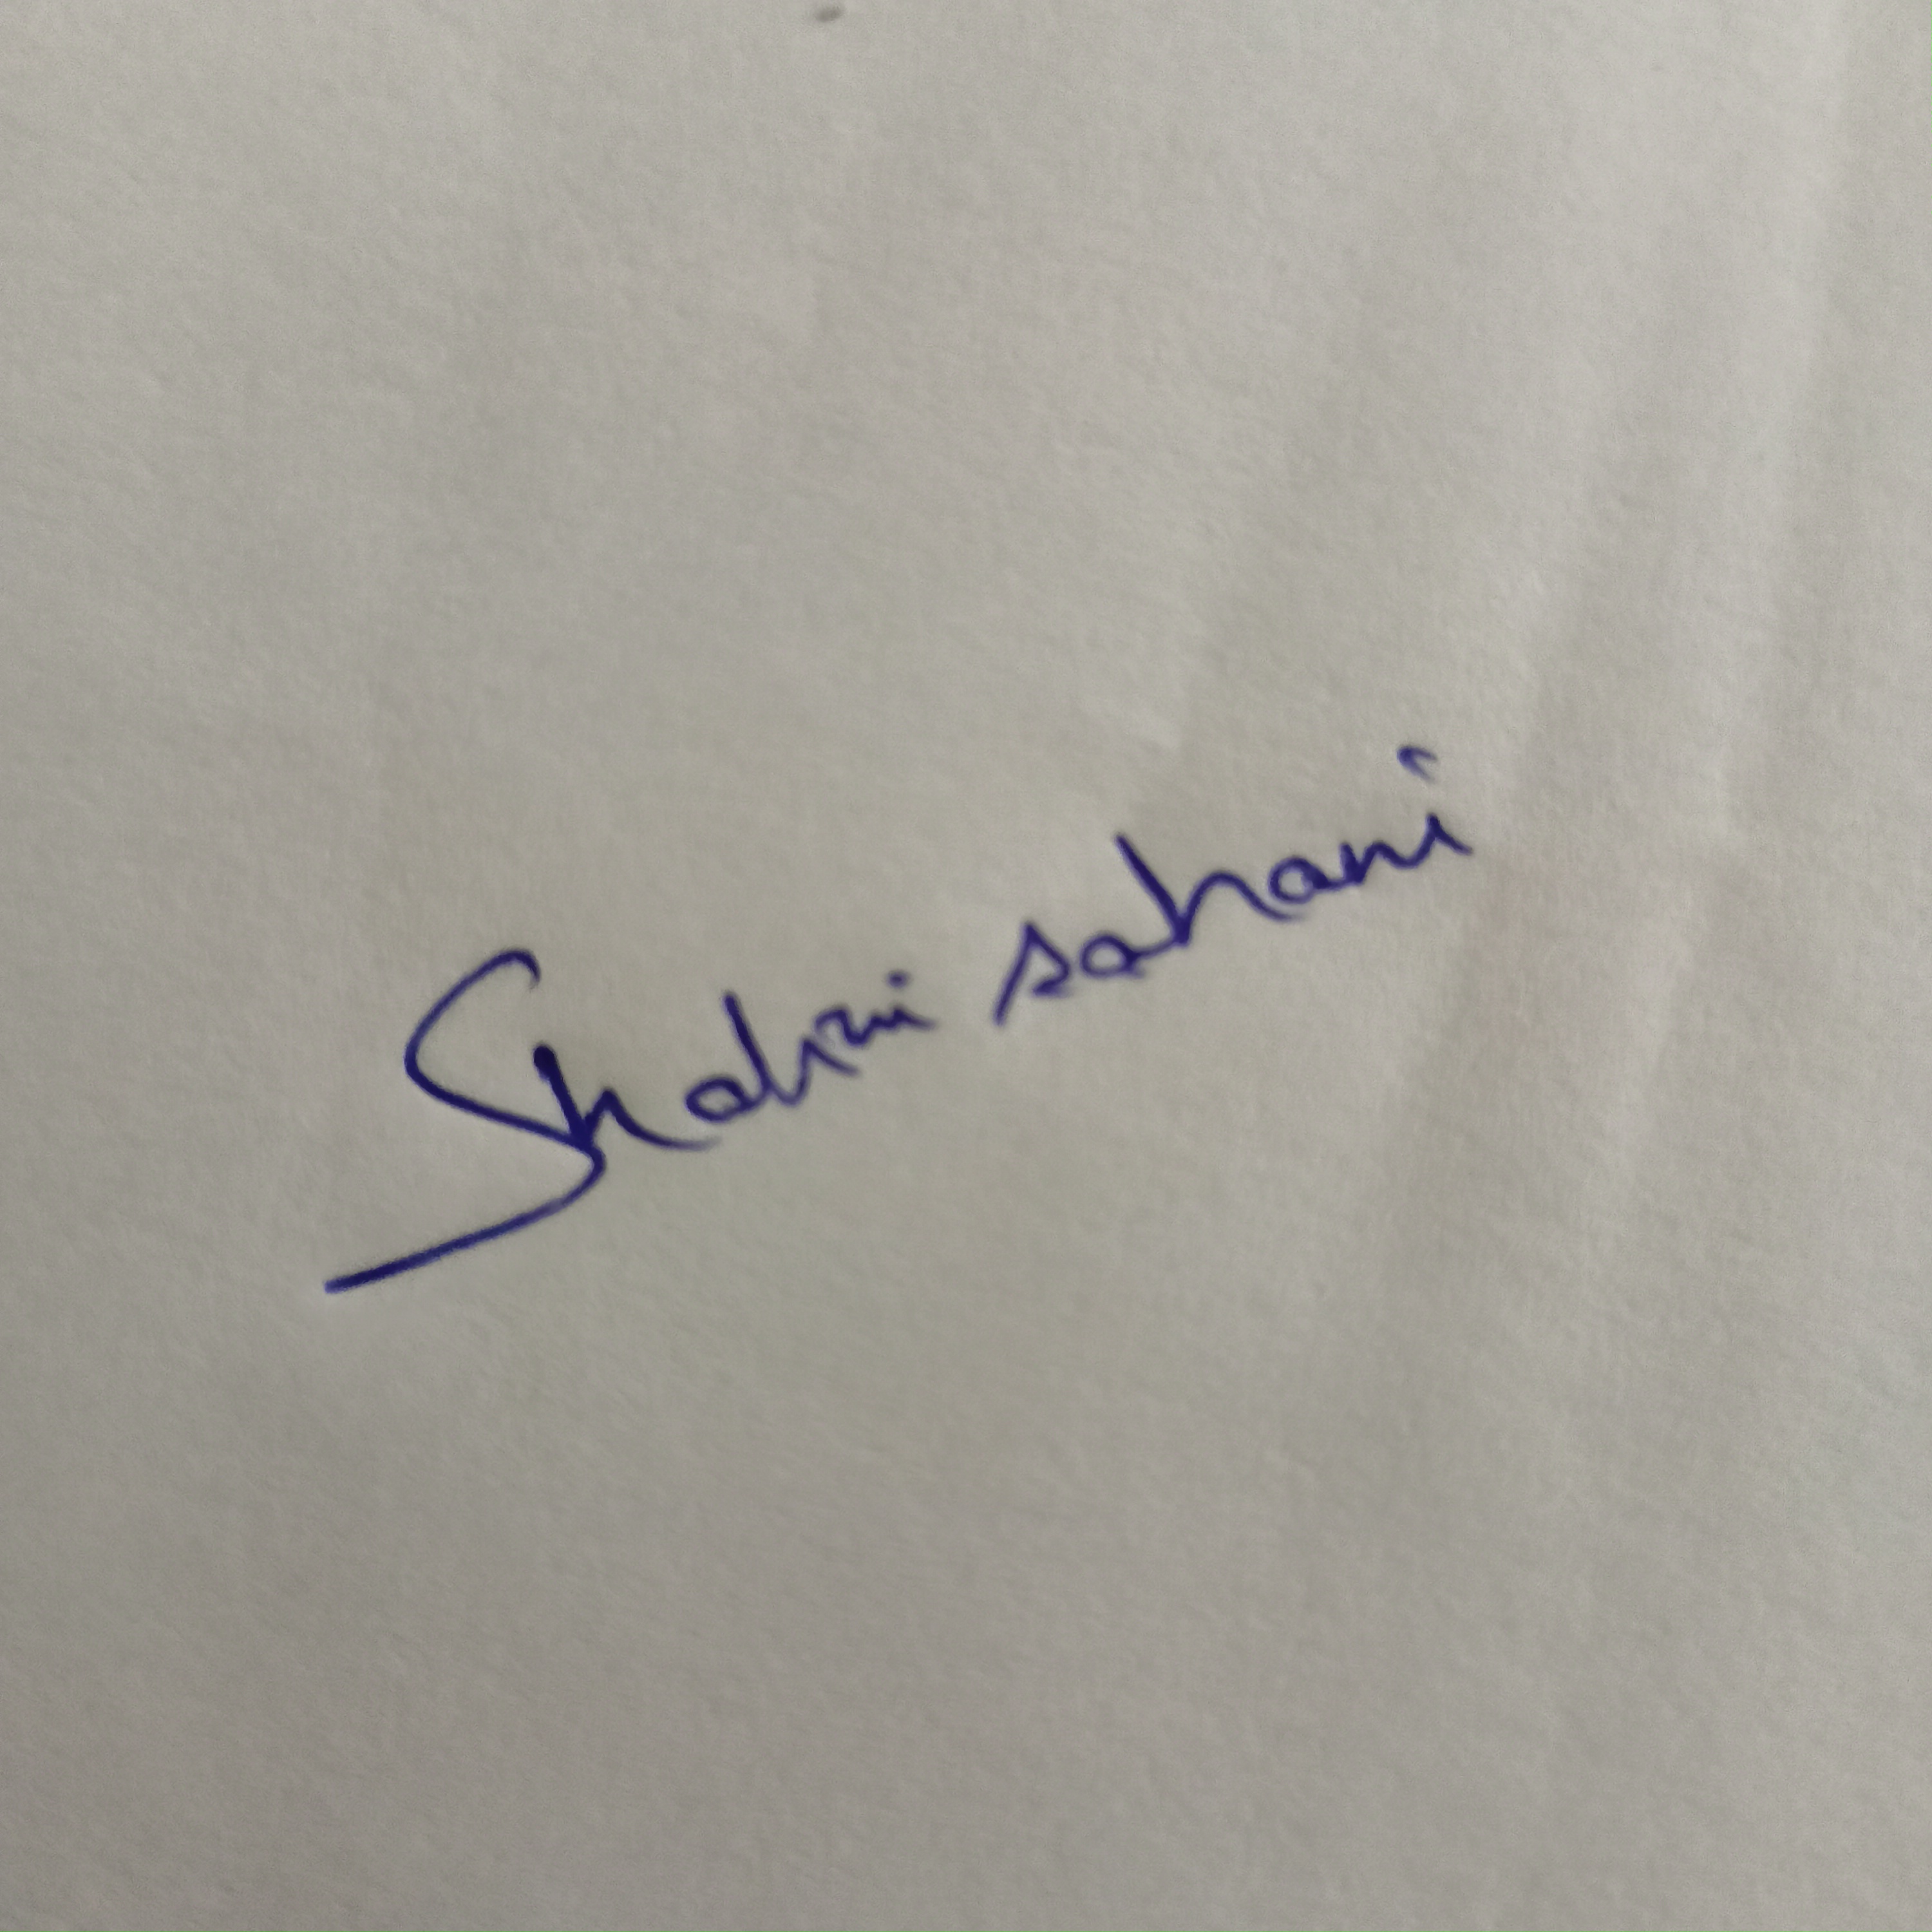 Shahni sahani